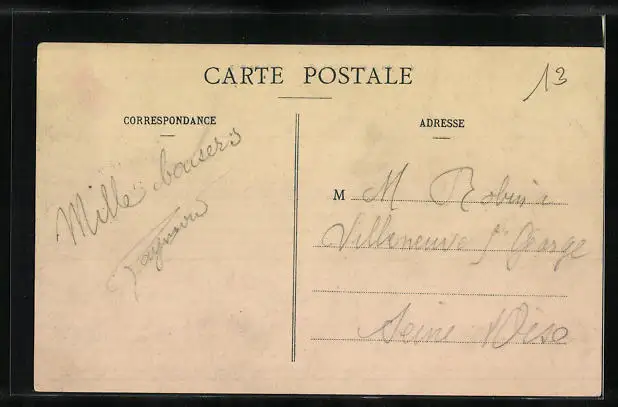 CARTE POSTALE
13
CORRESPONDANCE
Mille baisers
ADRESSE
M M Robin
Villeneuve St George
Seine & Oise